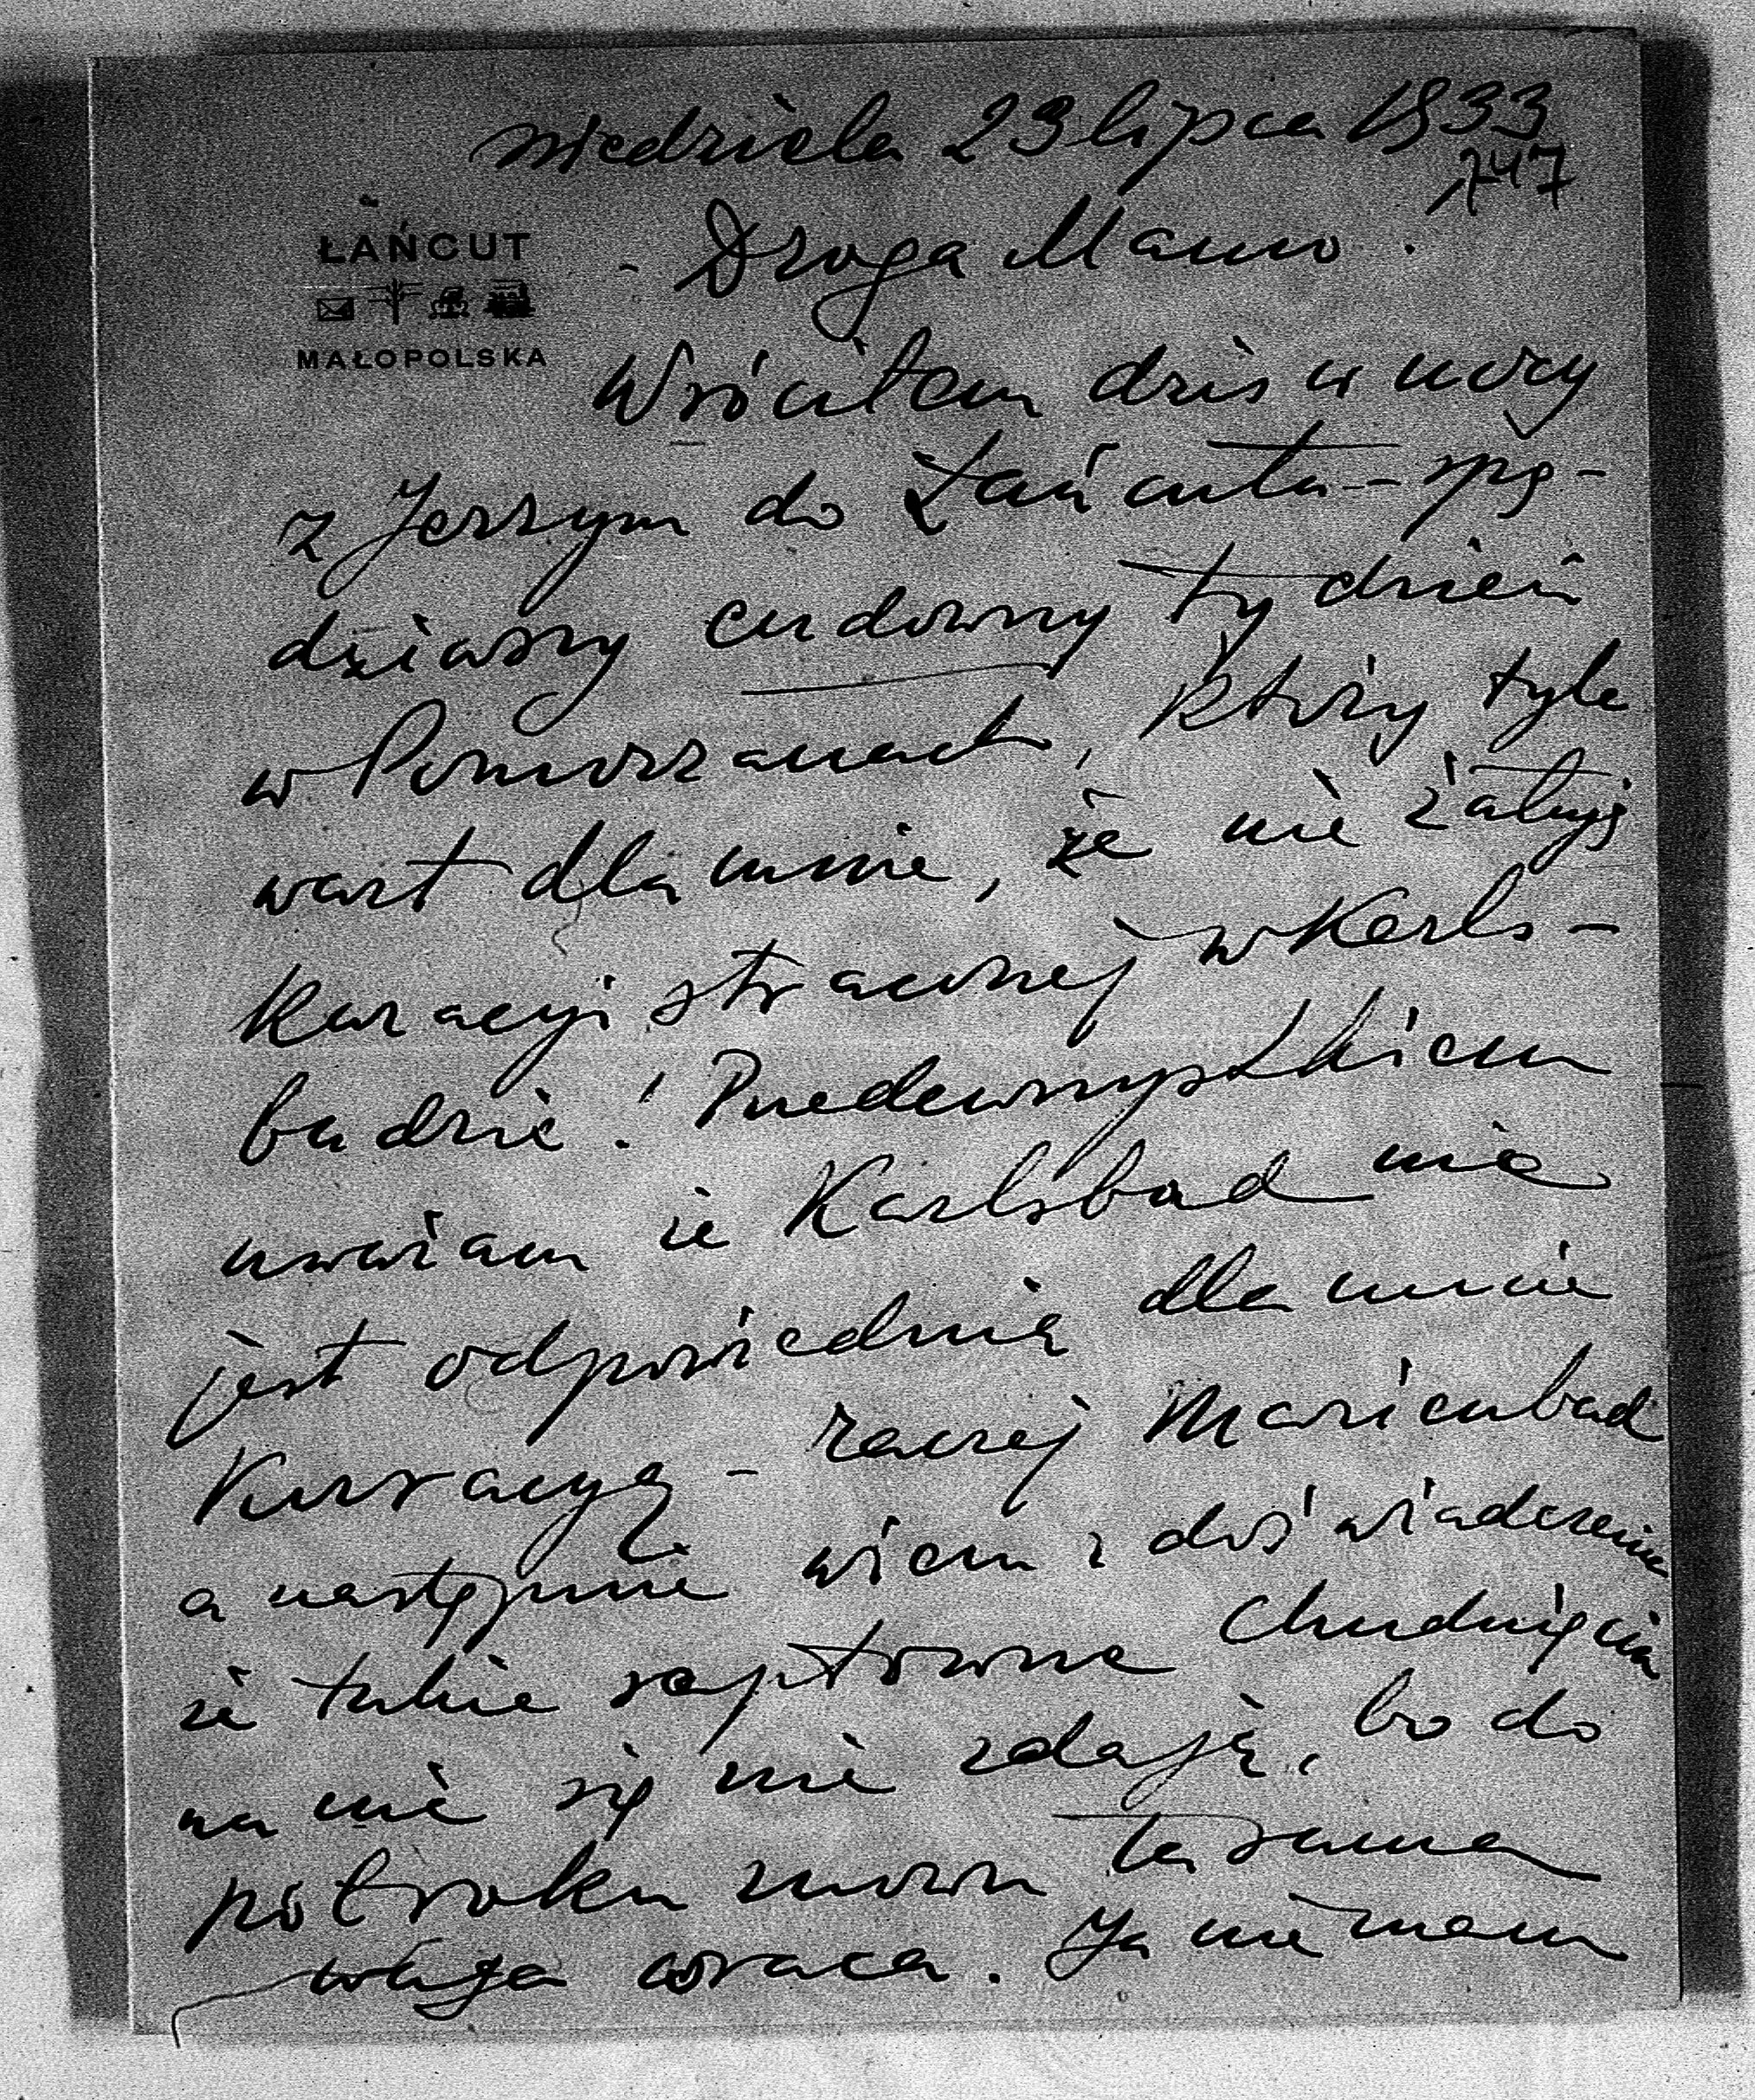 niedziela 23 lipca 1933
147
ŁAŃCUT
MAŁOPOLSKA
- Droga Mamo.
Wróciłem dziś w nocy
z Jerzym do Łańcuta - spę-
dziwszy cudowny tydzień
w Pomorzanach, który tyle
wart dla mnie, że nie żałuję
kuracyi straconej w Karls-
badzie! Przedewszystkiem
uważam że Karlsbad nie
jest odpowiednią dla mnie
Kurracyą - raczej Marienbad
a następnie wiem z doświadczenia
że takie raptowne chudnięcia
na nic się nie zdają, bo do
pół roku znowu ta sama
waga wraca. Ja nie mam